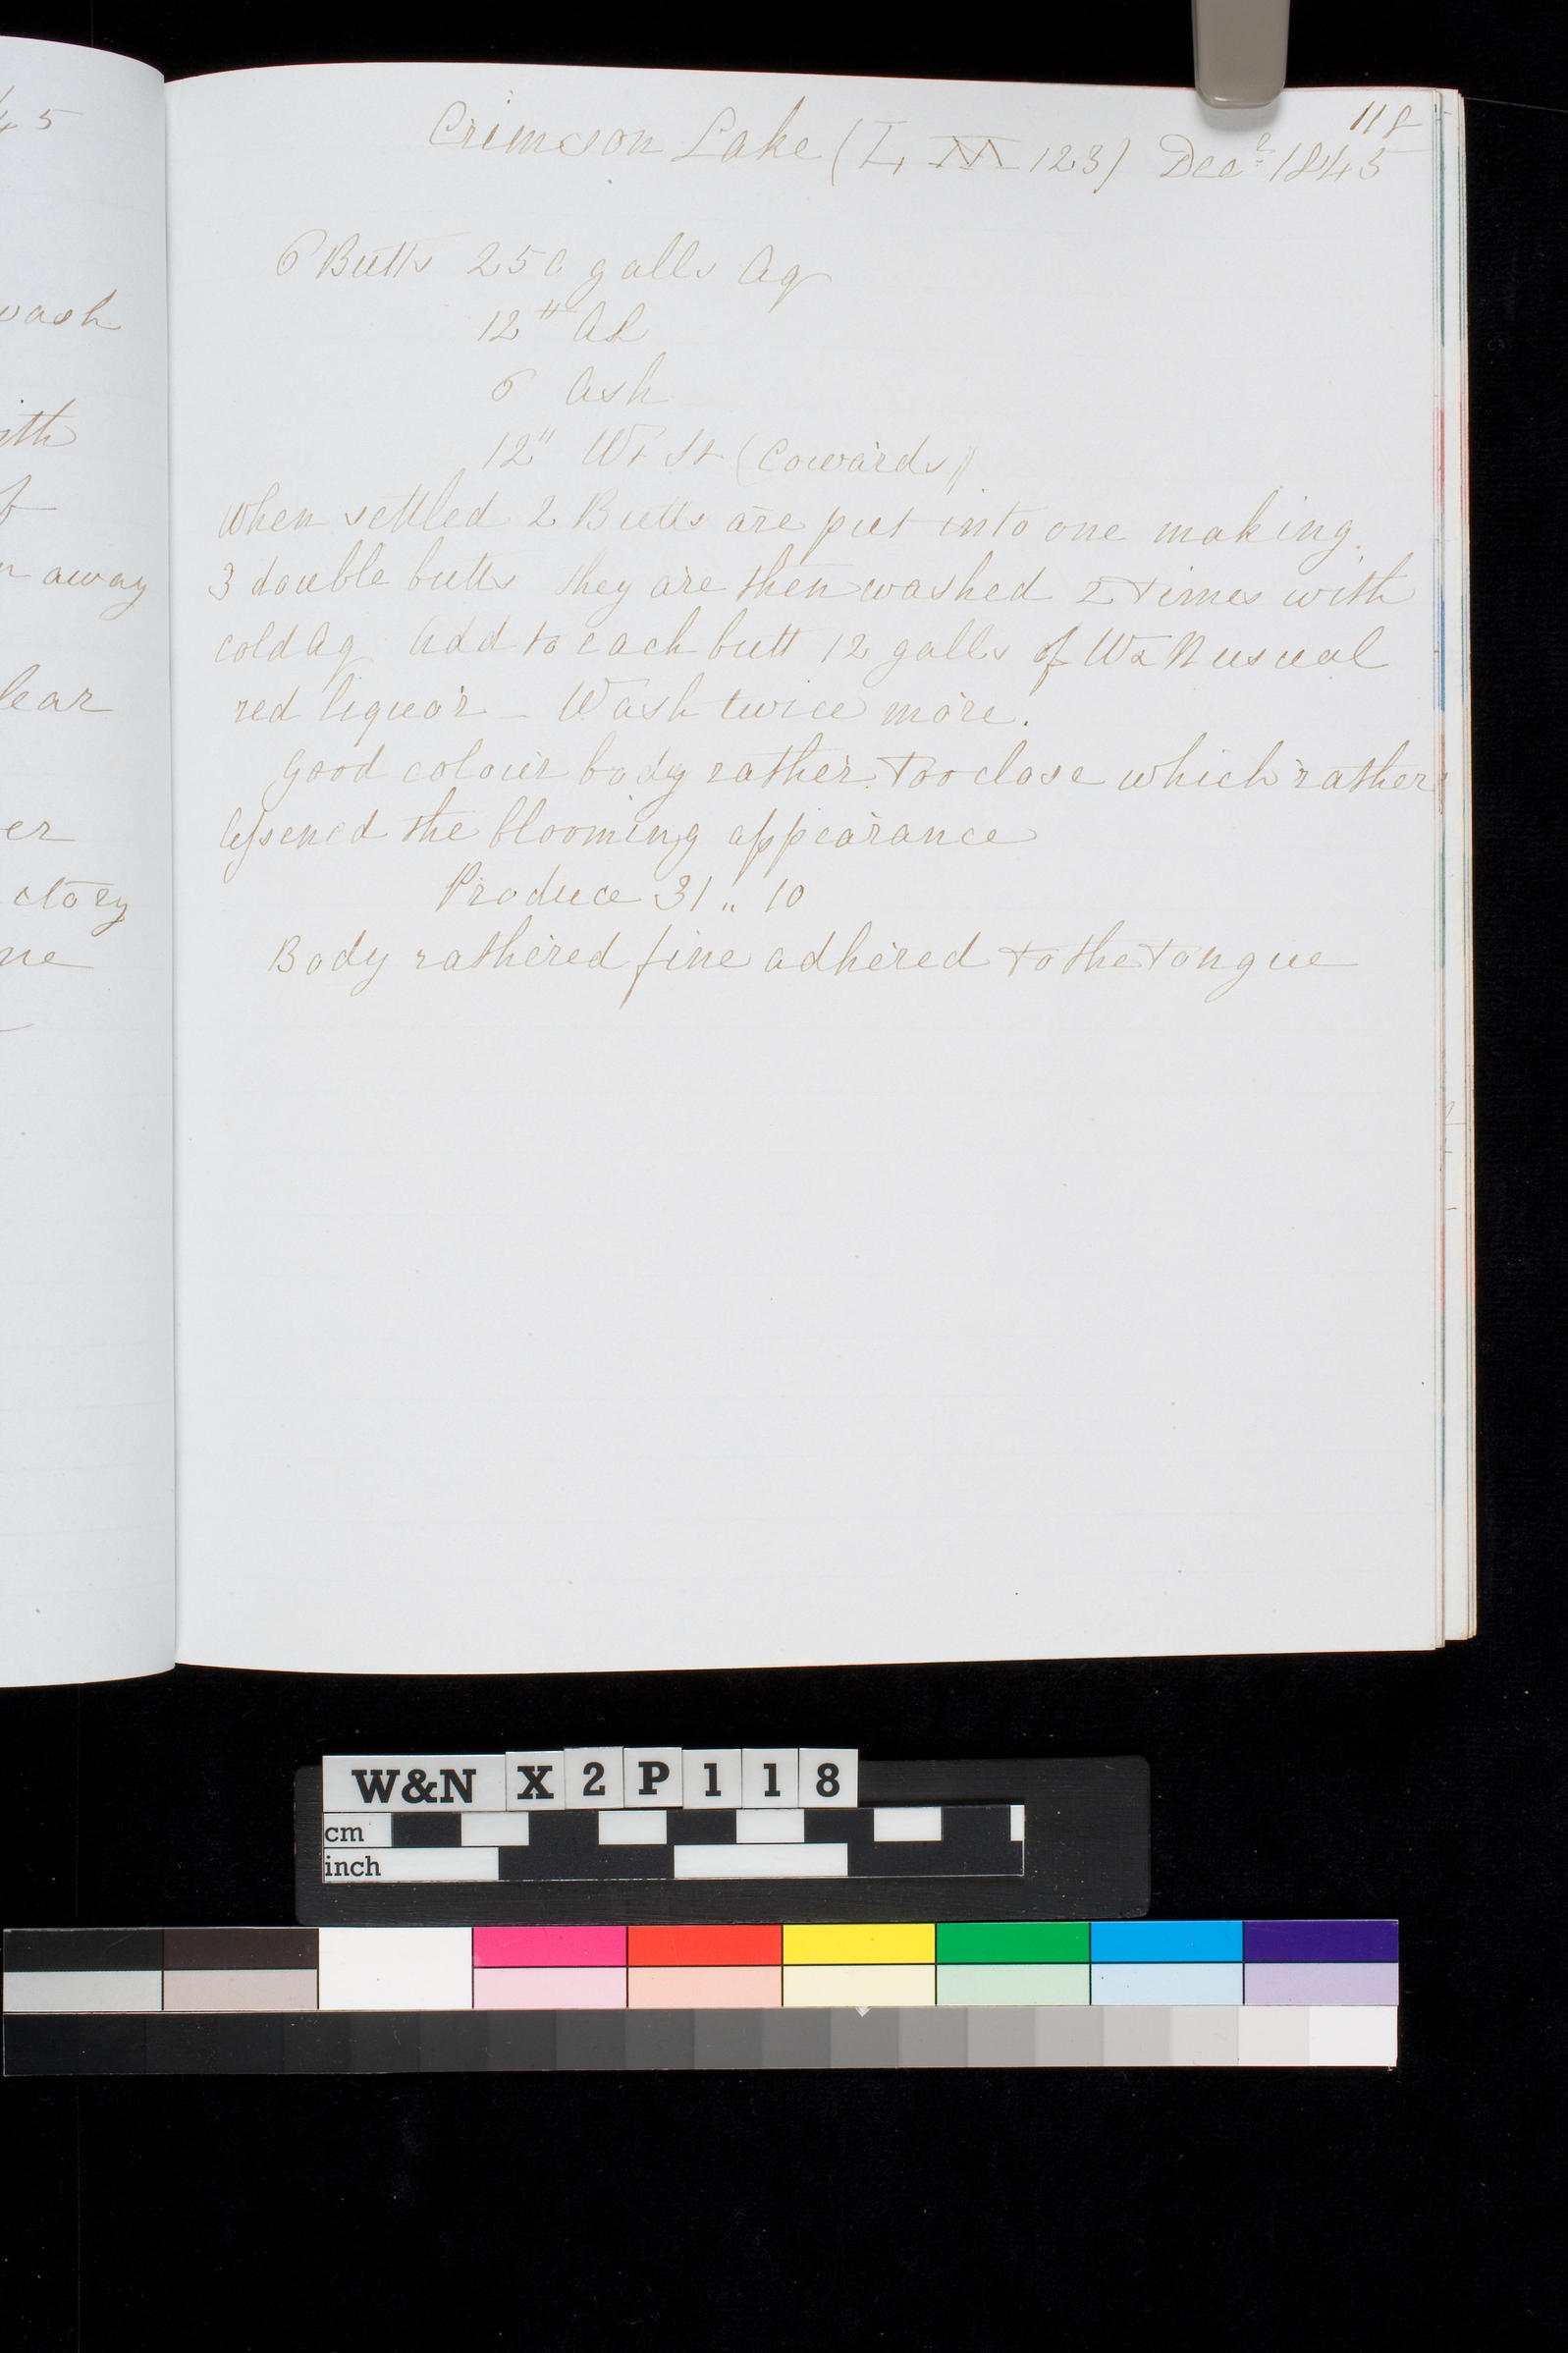 45
wash
ith
n away
lear
er
ctory
ne
118
Crimson Lake (L, M 123) Decr 1845
6 Butts 250 galls Aq
12 " AL
6 Ash
12 " Wt St (Cowards)
When settled 2 Butts are put into one making
3 double butts they are then washed 2 times with
cold Aq Add to each butt 12 galls of W & N usual
red liquor – Wash twice more.
Good colour body rather too close which rather
lessened the blooming appearance
Produce 31 " 10
Body rathered fine adhered to the tongue
W&N X 2 P 1 1 8
cm
inch